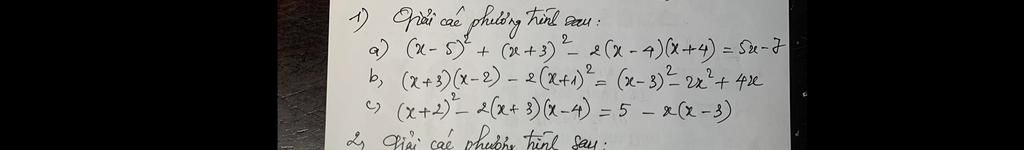 1) Giải các phương trình sau:
a) (x-5)² + (x+3)² - 2(x-4)(x+4) = 5x-7
b, (x+3)(x-2) - 2(x+1)² = (x-3)² - 2x² + 4x
c, (x+2)² - 2(x+3)(x-4) = 5 - x(x-3)
2, Giải các phương trình sau: